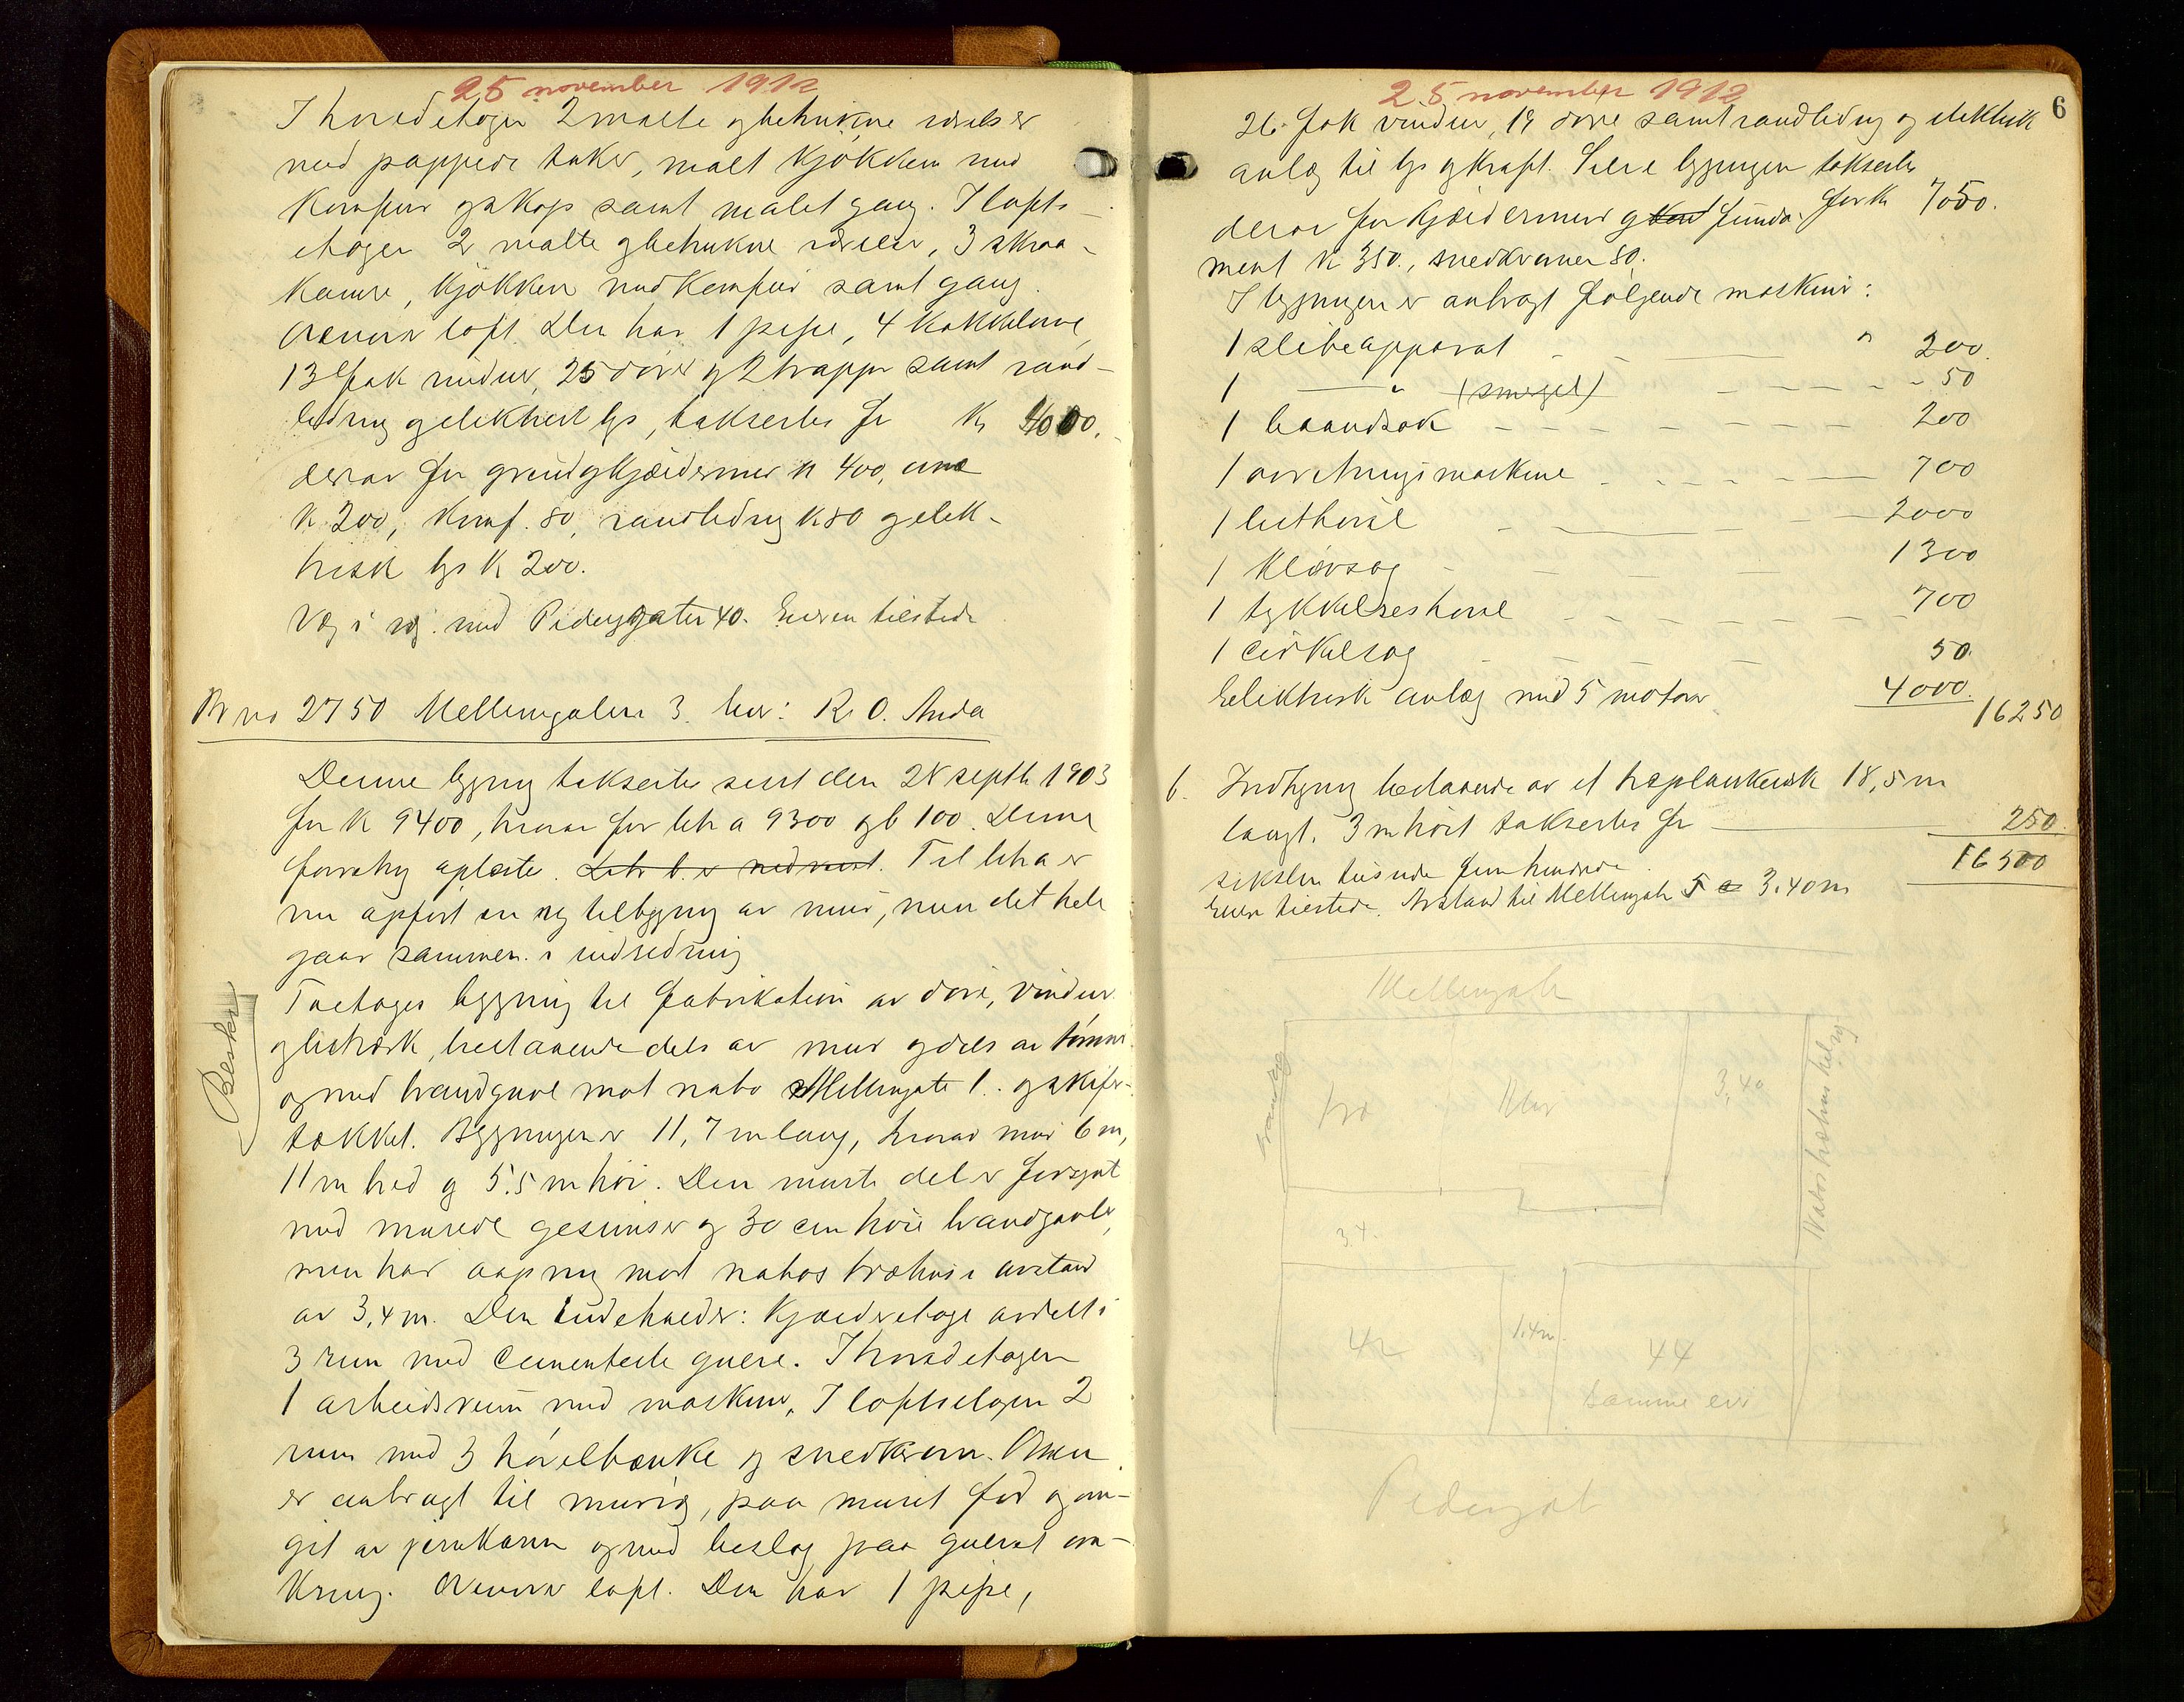 25 november 1912
I hovedetagen 2 malte og betrukne værelser
med pappede taker, malt kjøkken med
komfur og skap samt malet gang. I lofts-
etagen 2 malte og betrukne værelser, 3 skraa-
kamre, kjøkken med komfur samt gang.
Øverst loft. Den har 1 pipe, 4 kakkelovne
13 fak vinduer, 25 døre og 2 trapper samt vand-
ledning og elektrisk lys, takseres for kr 9000.
derav for grund og kjældermur kr 400, ovne
kr. 200, komf. 80, vandledning kr 80 og elek-
trisk lys kr 200.
Væg i væg med Pedersgaten 40. Eieren tilstede
Br no 2750 Møllergaten 3. eier: R. O. Anda
Denne bygning takseertes sidst den 28 septbr 1903
for kr 9400, hvorav for litr a 9300 og b 100. Denne
forretning oplæste. Litr b. er nedrevet. Til litr a er
nu opført en ny tilbygning av mur, men det hele
gaar sammen i indredning
Beskr
Toetages bygning til fabrikation av døre, vinduer
og listværk, bestaaende dels av mur og dels av tømmer
og med brandgavl mot nabo Møllergate 1. og skifer-
tækket. Bygningen er 11,7 m lang, hvorav mur 6 m,
11 m bred og 5.5 m høi. Den murte del er forsynt
med murede gesimser og 30 cm høie brandgavler,
men har aapning mot nabos træhus i avstand
av 3,4 m. Den indeholder: Kjælderetage avdelt i
3 rum med cementerte gulve. I hovedetagen
1 arbeidsrum med maskiner, I loftsetagen 2
rum med 3 høvelbænke og snedkerovn. Ovnen
er anbragt til murvæg, paa muret fod og om-
git av jernkarm og med beslag paa gulvet om-
kring. Øverst loft. Den har 1 pipe,
25 november 1912
6
26 fak vinduer, 19 døre samt vandledning og elektrisk
anlæg til lys og kraft. Selve bygningen takseertes
for kr 7050.
derav for kjældermur og funda-
ment kr 350., snedkerovner 80.
I bygningen er anbragt følgende maskiner:
1 slibeapparat " 200.
1 " (smergel) 50
1 baandsak 200
1 avretningsmaskine 700
1 listhøvl 2000
1 kløvsag 1300
1 tykkelseshøvl 700
1 cirkelsag 50.
Elektrisk anlæg med 5 motorer 4000.
16250
b. Indhegning bestaaende av et træplankeværk 18,5 m
langt, 3 m høit takseertes for 250.
16500
seksten tusinde fem hundrede
Eieren tilstede. Avstand til Møllergate 5 a 3.40 m
Møllergate
Brandvæg
træ
Mur
3,40
Nabos træhus
3.4.
42
1.4 m
44
samme eier
Pedersgate